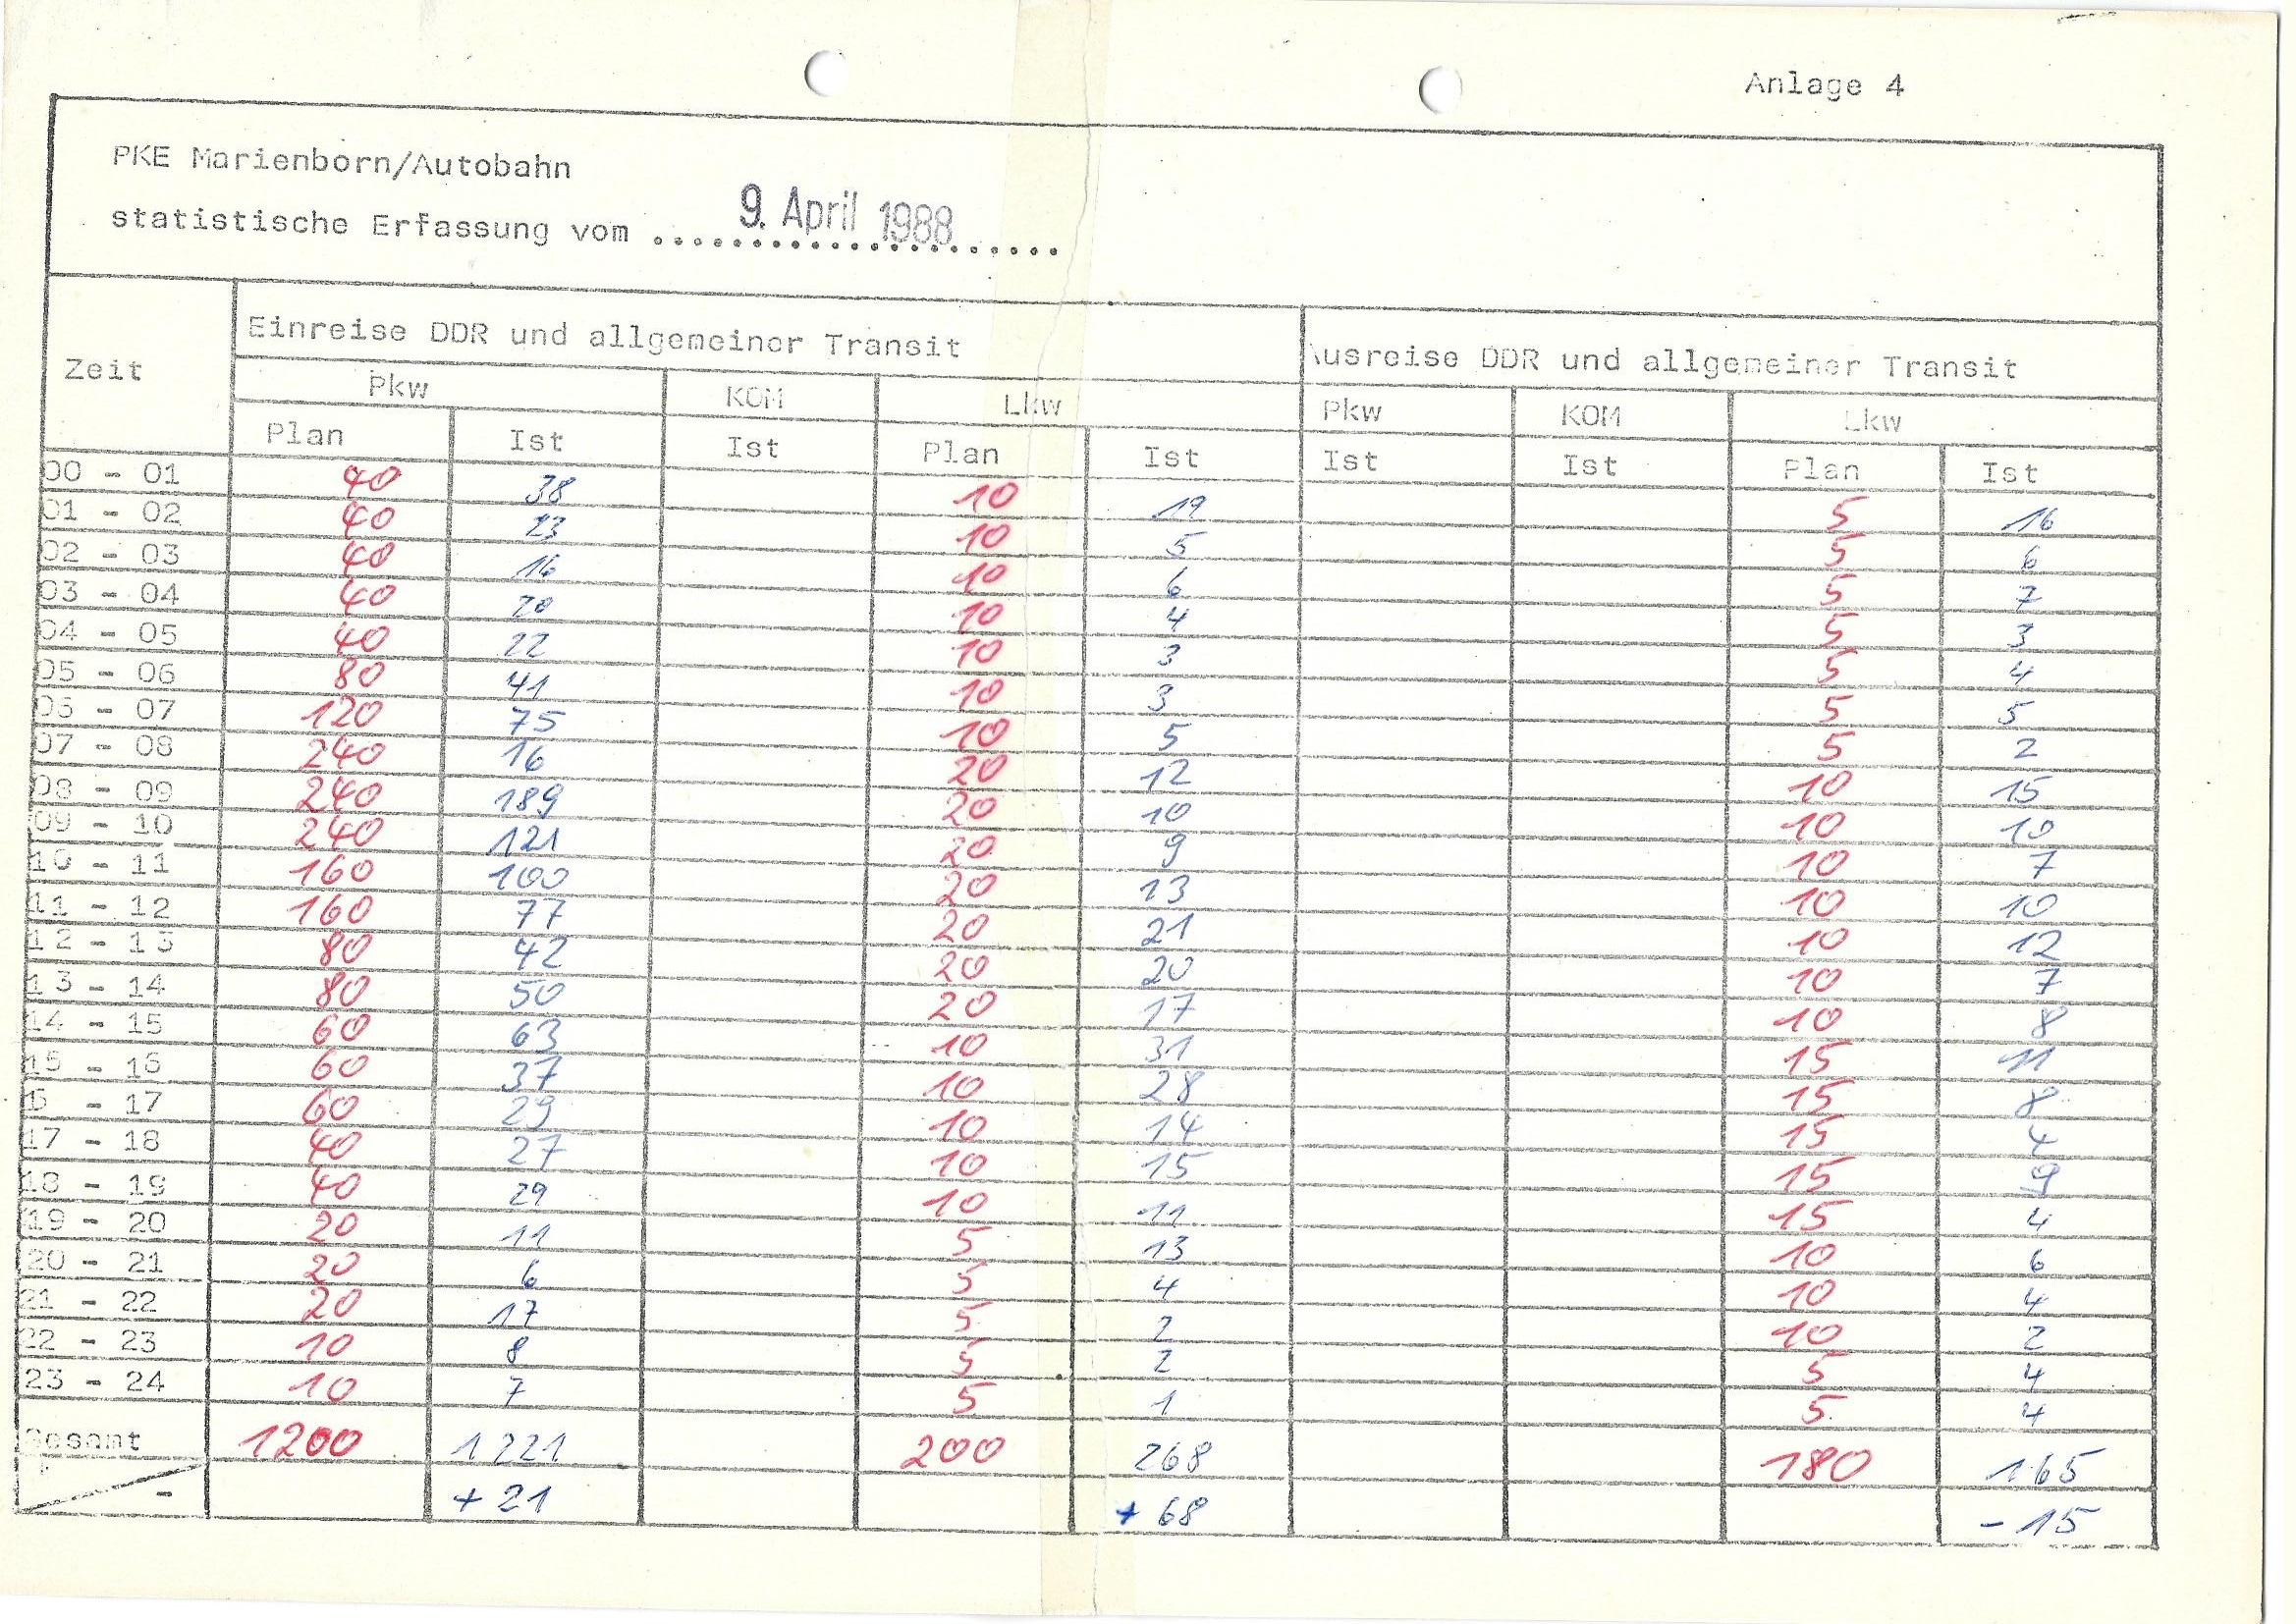 Anlage 4
PKE Marienborn/Autobahn
statistische Erfassung vom 9. April 1988
Zeit
Einreise DDR und allgemeiner Transit
Ausreise DDR und allgemeiner Transit
Pkw KOM Lkw Pkw KOM Lkw
Plan Ist Ist Plan Ist Ist Ist Plan Ist
00 - 01 40 38 10 19 5 16
01 - 02 40 23 10 5 5 6
02 - 03 40 16 10 6 5 7
03 - 04 40 20 10 4 5 3
04 - 05 40 22 10 3 5 4
05 - 06 80 41 10 3 5 5
06 - 07 120 75 10 5 5 2
07 - 08 240 16 20 12 10 15
08 - 09 240 189 20 10 10 10
09 - 10 240 121 20 9 10 7
10 - 11 160 100 20 13 10 10
11 - 12 160 77 20 21 10 12
12 - 13 80 42 20 20 10 7
13 - 14 80 50 20 17 10 8
14 - 15 60 63 10 31 15 11
15 - 16 60 37 10 28 15 8
16 - 17 60 29 10 14 15 4
17 - 18 40 27 10 15 15 9
18 - 19 40 29 10 11 15 4
19 - 20 20 11 5 13 10 6
20 - 21 20 6 5 4 10 4
21 - 22 20 17 5 2 10 2
22 - 23 10 8 5 2 5 4
23 - 24 10 7 5 1 5 4
Gesamt 1200 1221 200 268 180 165
- + 21 + 68 - 15